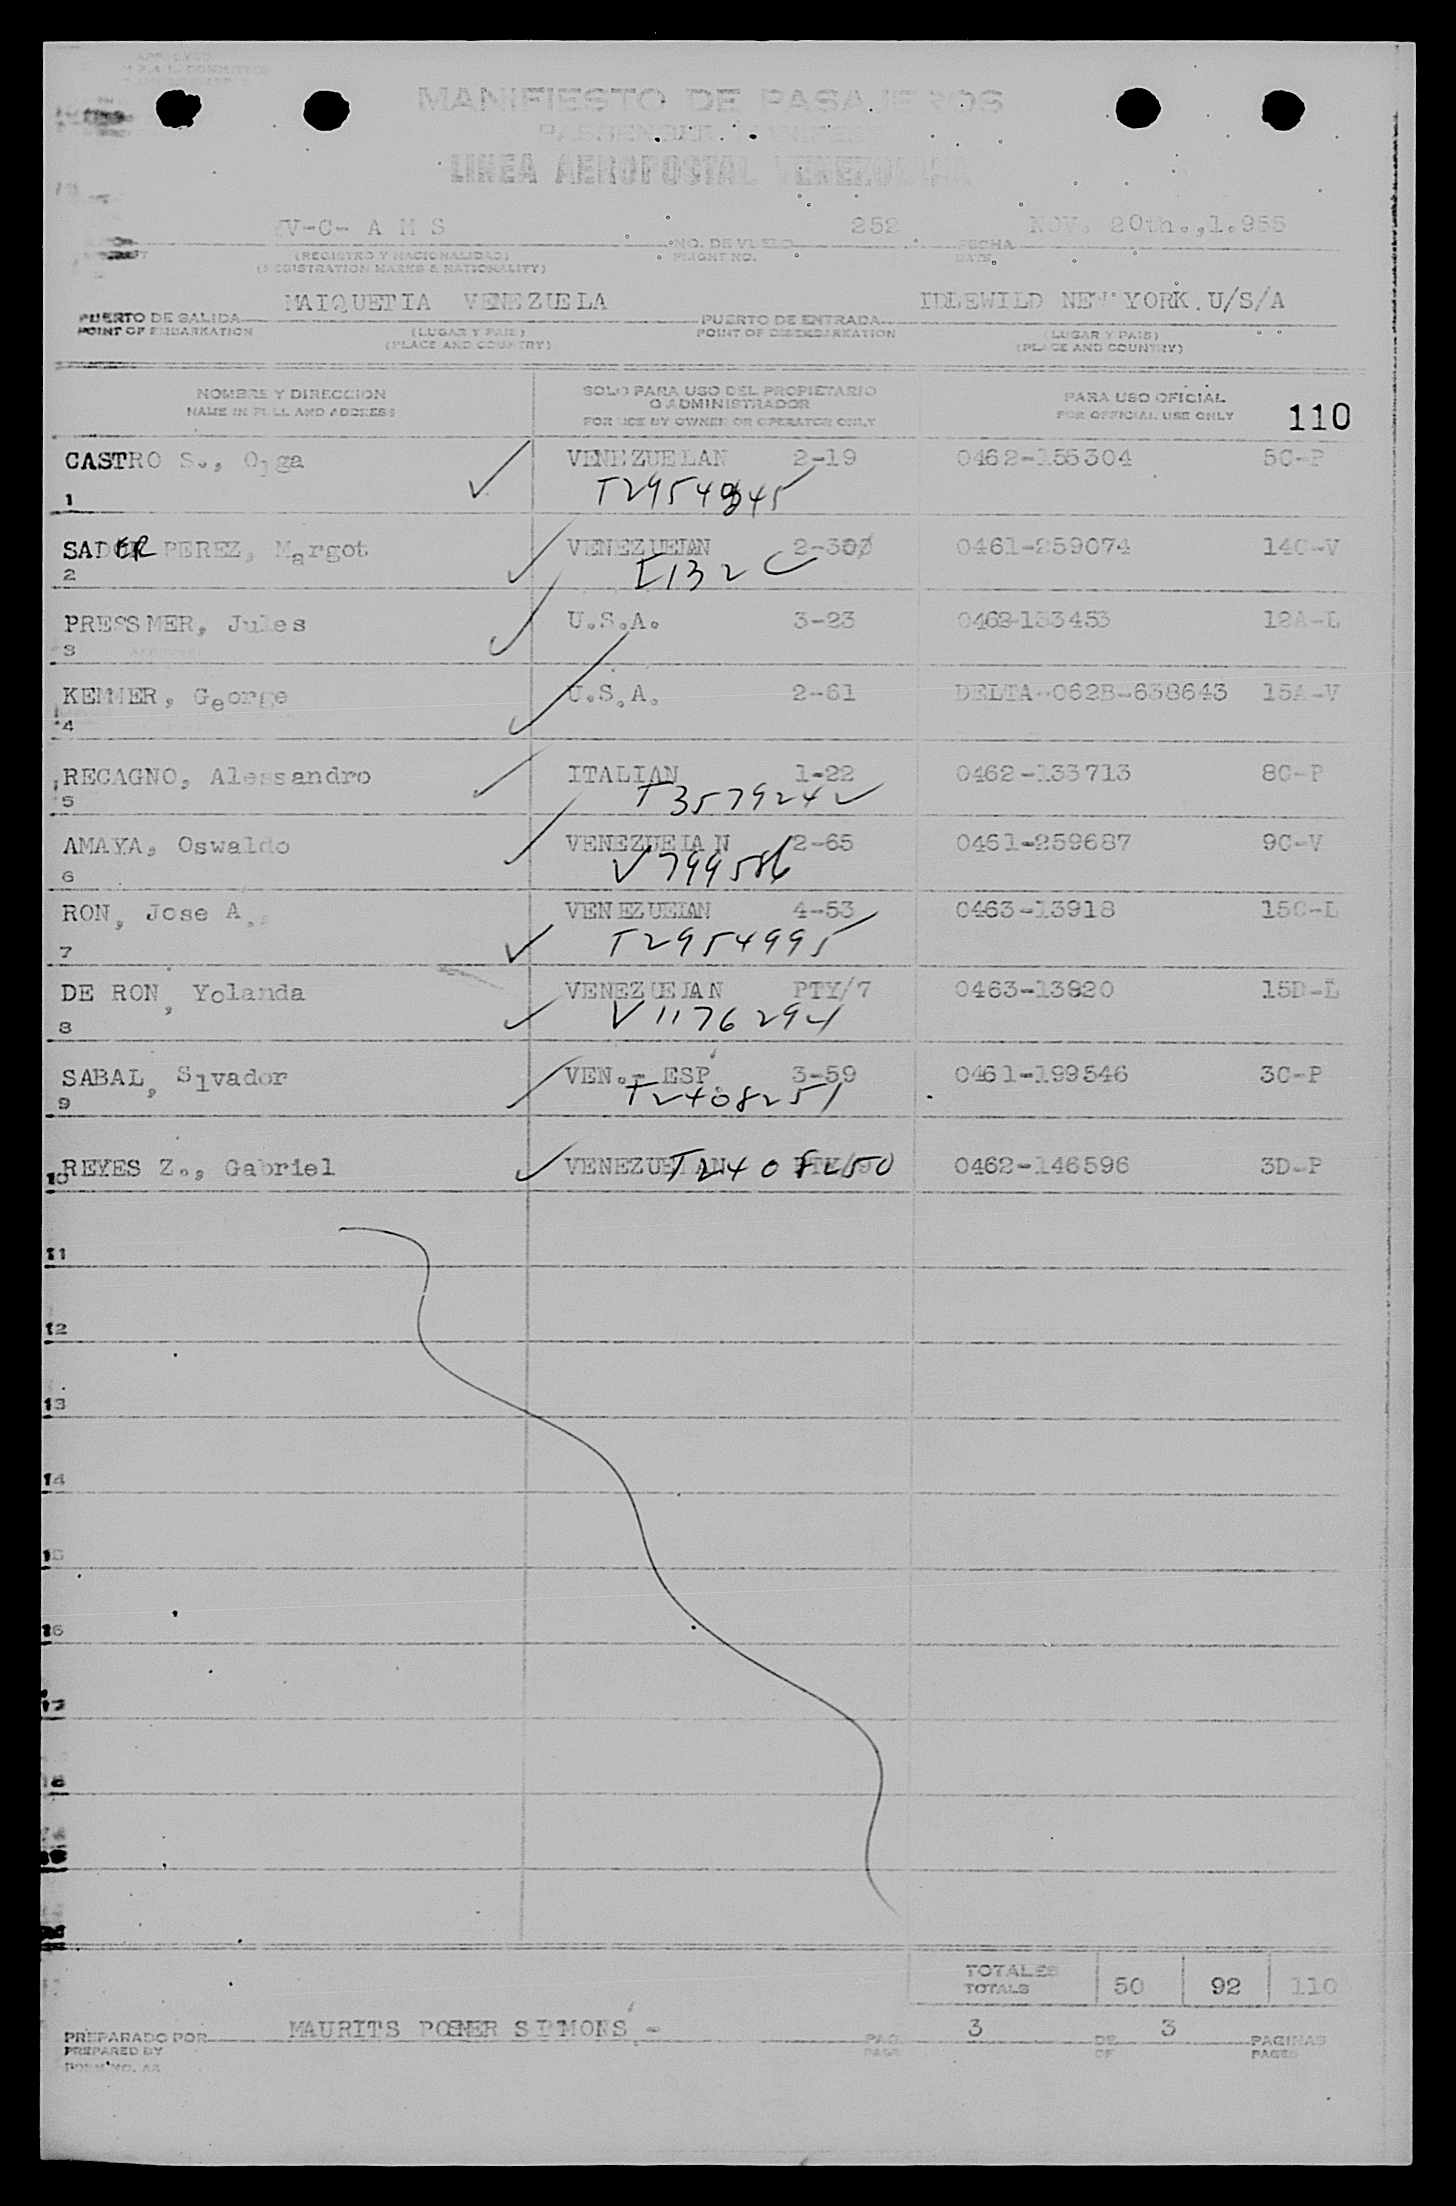 MANIFIESTO DE PASAJEROS
PASSENGER MANIFEST
LINEA AEROPOSTAL VENEZOLANA
YV-C- A M S 252 NOV. 20th.,1.955
NO. DE VUELO FECHA
(REGISTRO Y NACIONALIDAD) FLIGHT NO. DATE
(REGISTRATION MARKS & NATIONALITY)
MAIQUETIA VENEZUELA IDLEWILD NEW YORK.U/S/A
PUERTO DE SALIDA PUERTO DE ENTRADA
POINT OF EMBARKATION (LUGAR Y PAIS) POINT OF DISEMBARKATION (LUGAR Y PAIS)
(PLACE AND COUNTRY) (PLACE AND COUNTRY)
NOMBRE Y DIRECCION SOLO PARA USO DEL PROPIETARIO PARA USO OFICIAL
NAME IN FULL AND ADDRESS O ADMINISTRADOR FOR OFFICIAL USE ONLY 110
FOR USE BY OWNER OR OPERATOR ONLY
CASTRO S., Olga VENEZUELAN 2-19 0462-155304 5C-P
1 ✓
SADER PEREZ, Margot VENEZUELAN 2-300 0461-259074 14C-V
2 ✓ I132C
PRESSMER, Jules U.S.A. 3-23 0462-133453 12A-L
3 ✓
KEMMER, George U.S.A. 2-61 DELTA-062B-638643 15A-V
4 ✓
RECAGNO, Alessandro ITALIAN 1-22 0462-133713 8C-P
5 ✓ T3579242
AMAYA, Oswaldo VENEZUELAN 2-65 0461-259687 9C-V
6 ✓ V799586
RON, Jose A. VENEZUELAN 4-53 0463-13918 15C-L
7 ✓ T2954995
DE RON, Yolanda VENEZUELAN PTY/7 0463-13920 15D-L
8 ✓ V1176294
SABAL, Slvador VEN.- ESP. 3-59 0461-199546 3C-P
9 ✓ T2408251
10 REYES Z., Gabriel ✓ VENEZUELAN T2408250 PTY/9 0462-146596 3D-P
11
12
13
14
15
16
17
18
TOTALES
TOTALS 50 92 110
PREPARADO POR MAURITS POSNER SIMONS.- PAG. 3 DE 3 PAGINAS
PREPARED BY PAGE OF PAGES